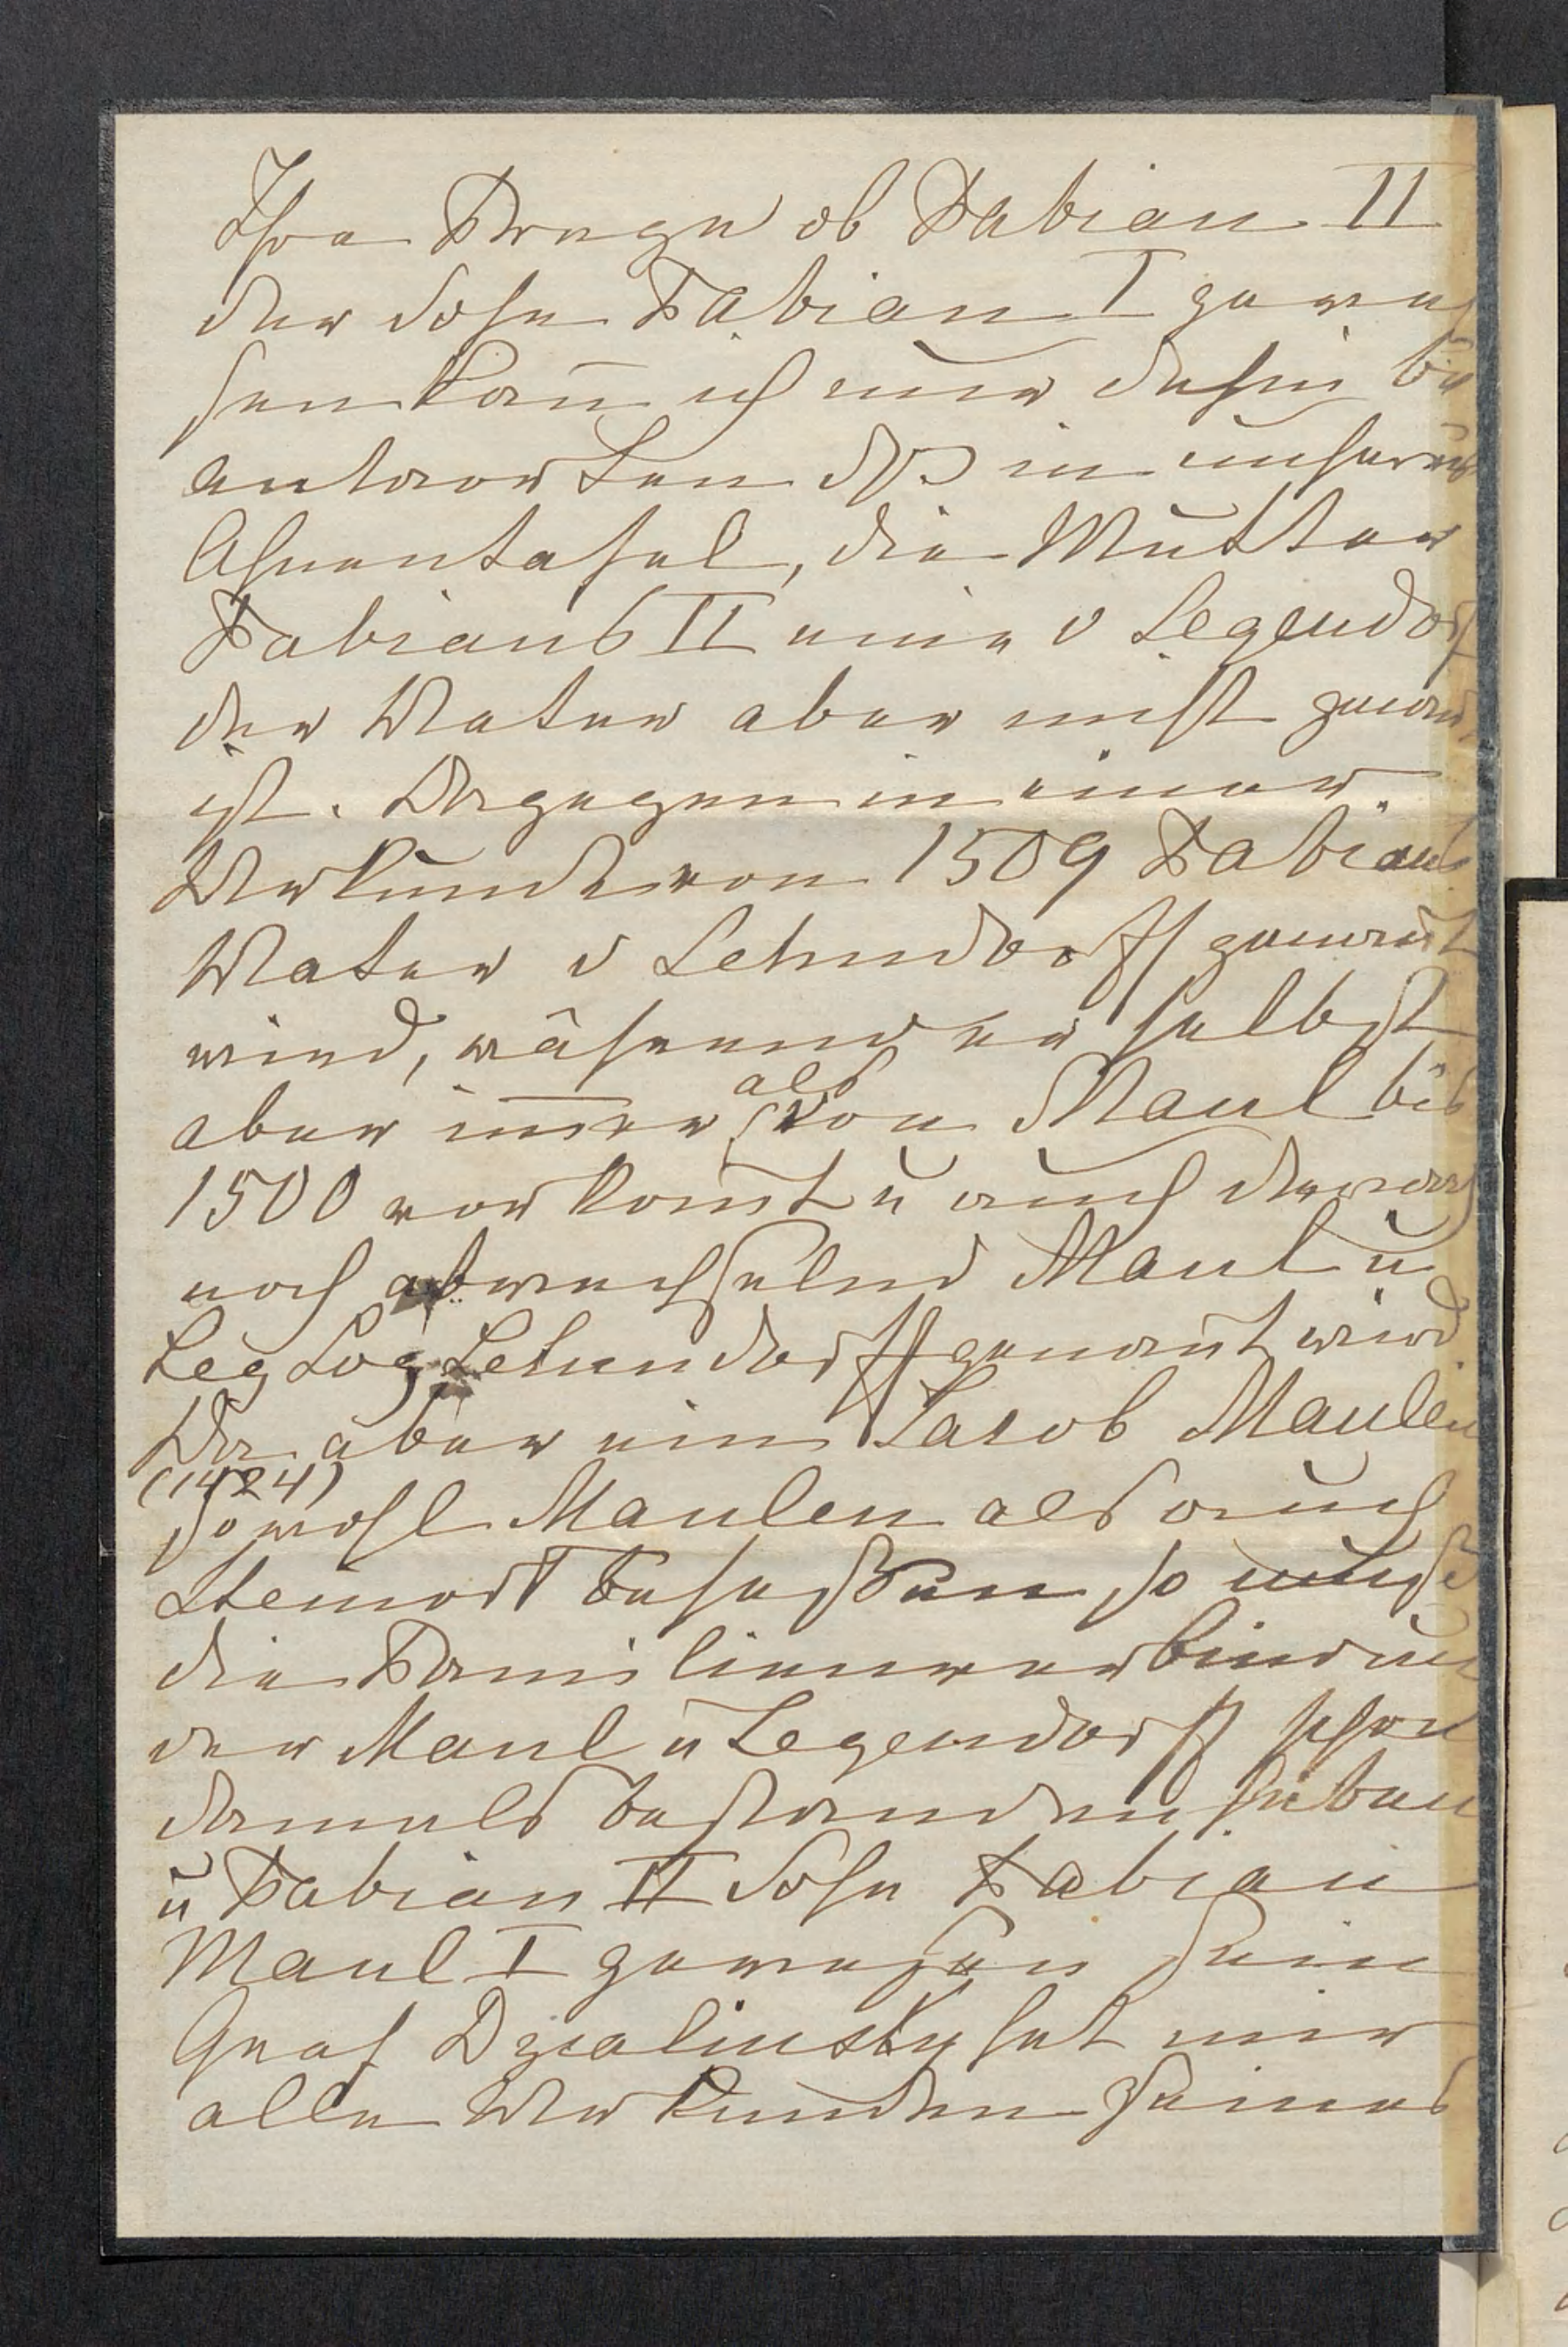 Ihre Frage ob Fabian II
der Sohn Fabian I gewe
sen kan̄ ich nur dahin be
antworten dß in unserer
Ahnentafel, die Mutter
Fabians II eine v Legendorf
der Vater aber nicht genan̄t
ist. Dagegen in einer
Urkunde von 1509 Fabians
Vater v Lehndorff genan̄t
wird, während er selbst
aber im̄er als von Maul bis
1500 vorkom̄t u auch danach
noch abwechselnd Maul u
Leg Log Lehndorff genan̄t wird.
Da aber ein Jacob Maulen
(1424)
sowohl Maulen als auch
Steinort besessen so muß
die Familienverbindung
der Maul u Legendorff schon
damals bestanden haben
u Fabian II Sohn Fabian
Maul I gewesen sein
Graf Dzialinsky hat mir
alle Urkunden seines